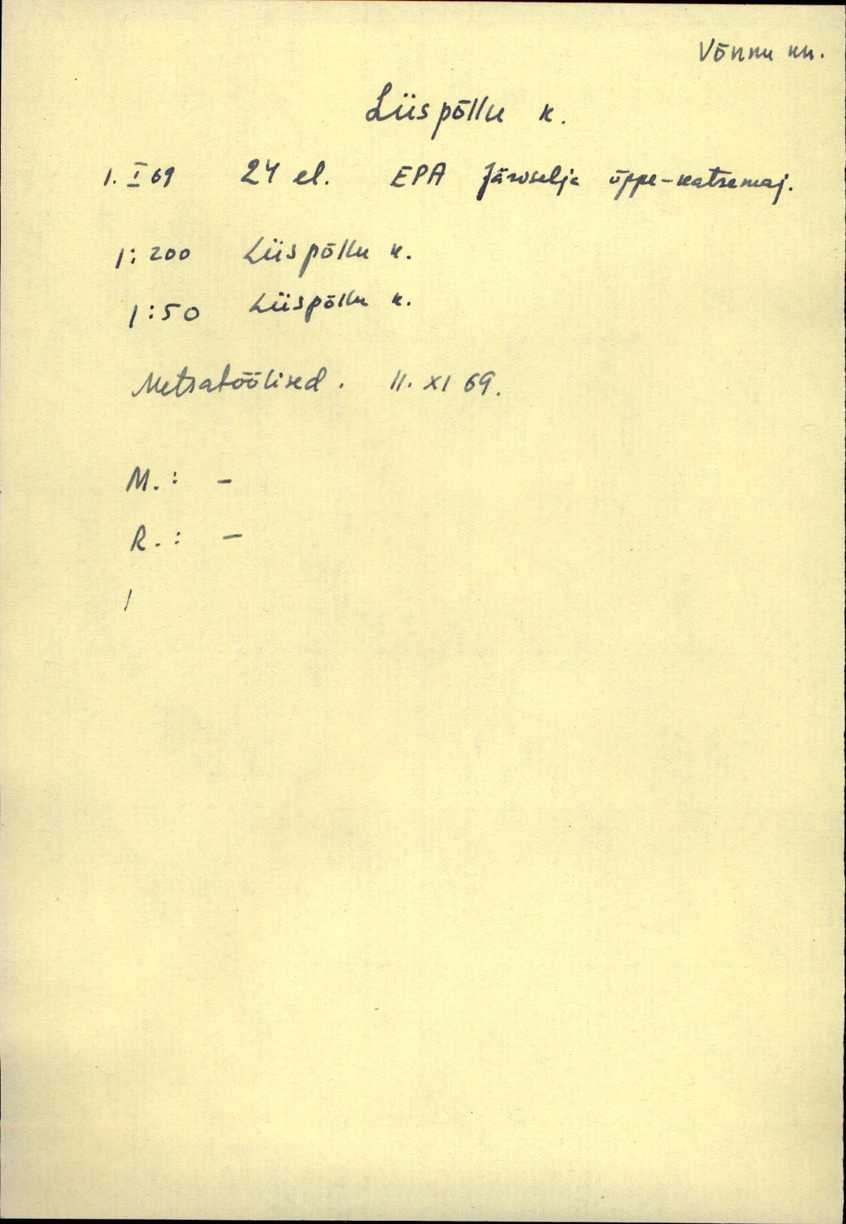 Võnnu kn.
Liispõllu k.
1. I 69 24 el. EPA Järvselja õppe-katsemaj.
1:200 Liispõllu k.
1:50 Liispõllu k.
Metsatöölised. 11. XI 69.
M.: –
R.: –
/